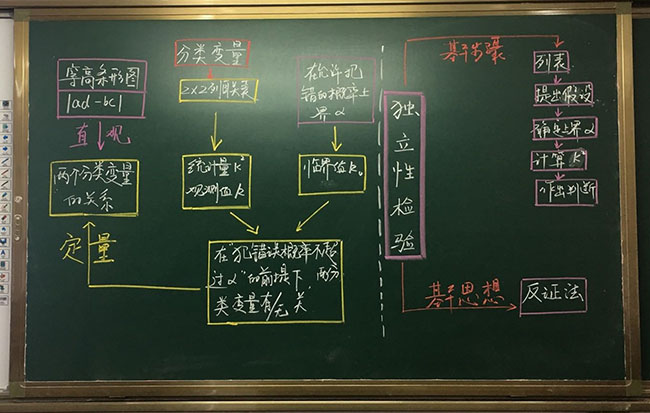 等高条形图
|ad-bc|
直观
两个分类变量
的关系
定量
分类变量
2×2列联表
统计量K²
观测值k
在允许犯
错的概率上
界α
临界值k₀
在"犯错误概率不超
过α"的前提下,两分
类变量有/无关
独立性检验
基本步骤
列表
提出假设
确定上界α
计算K²
作出判断
基本思想
反证法